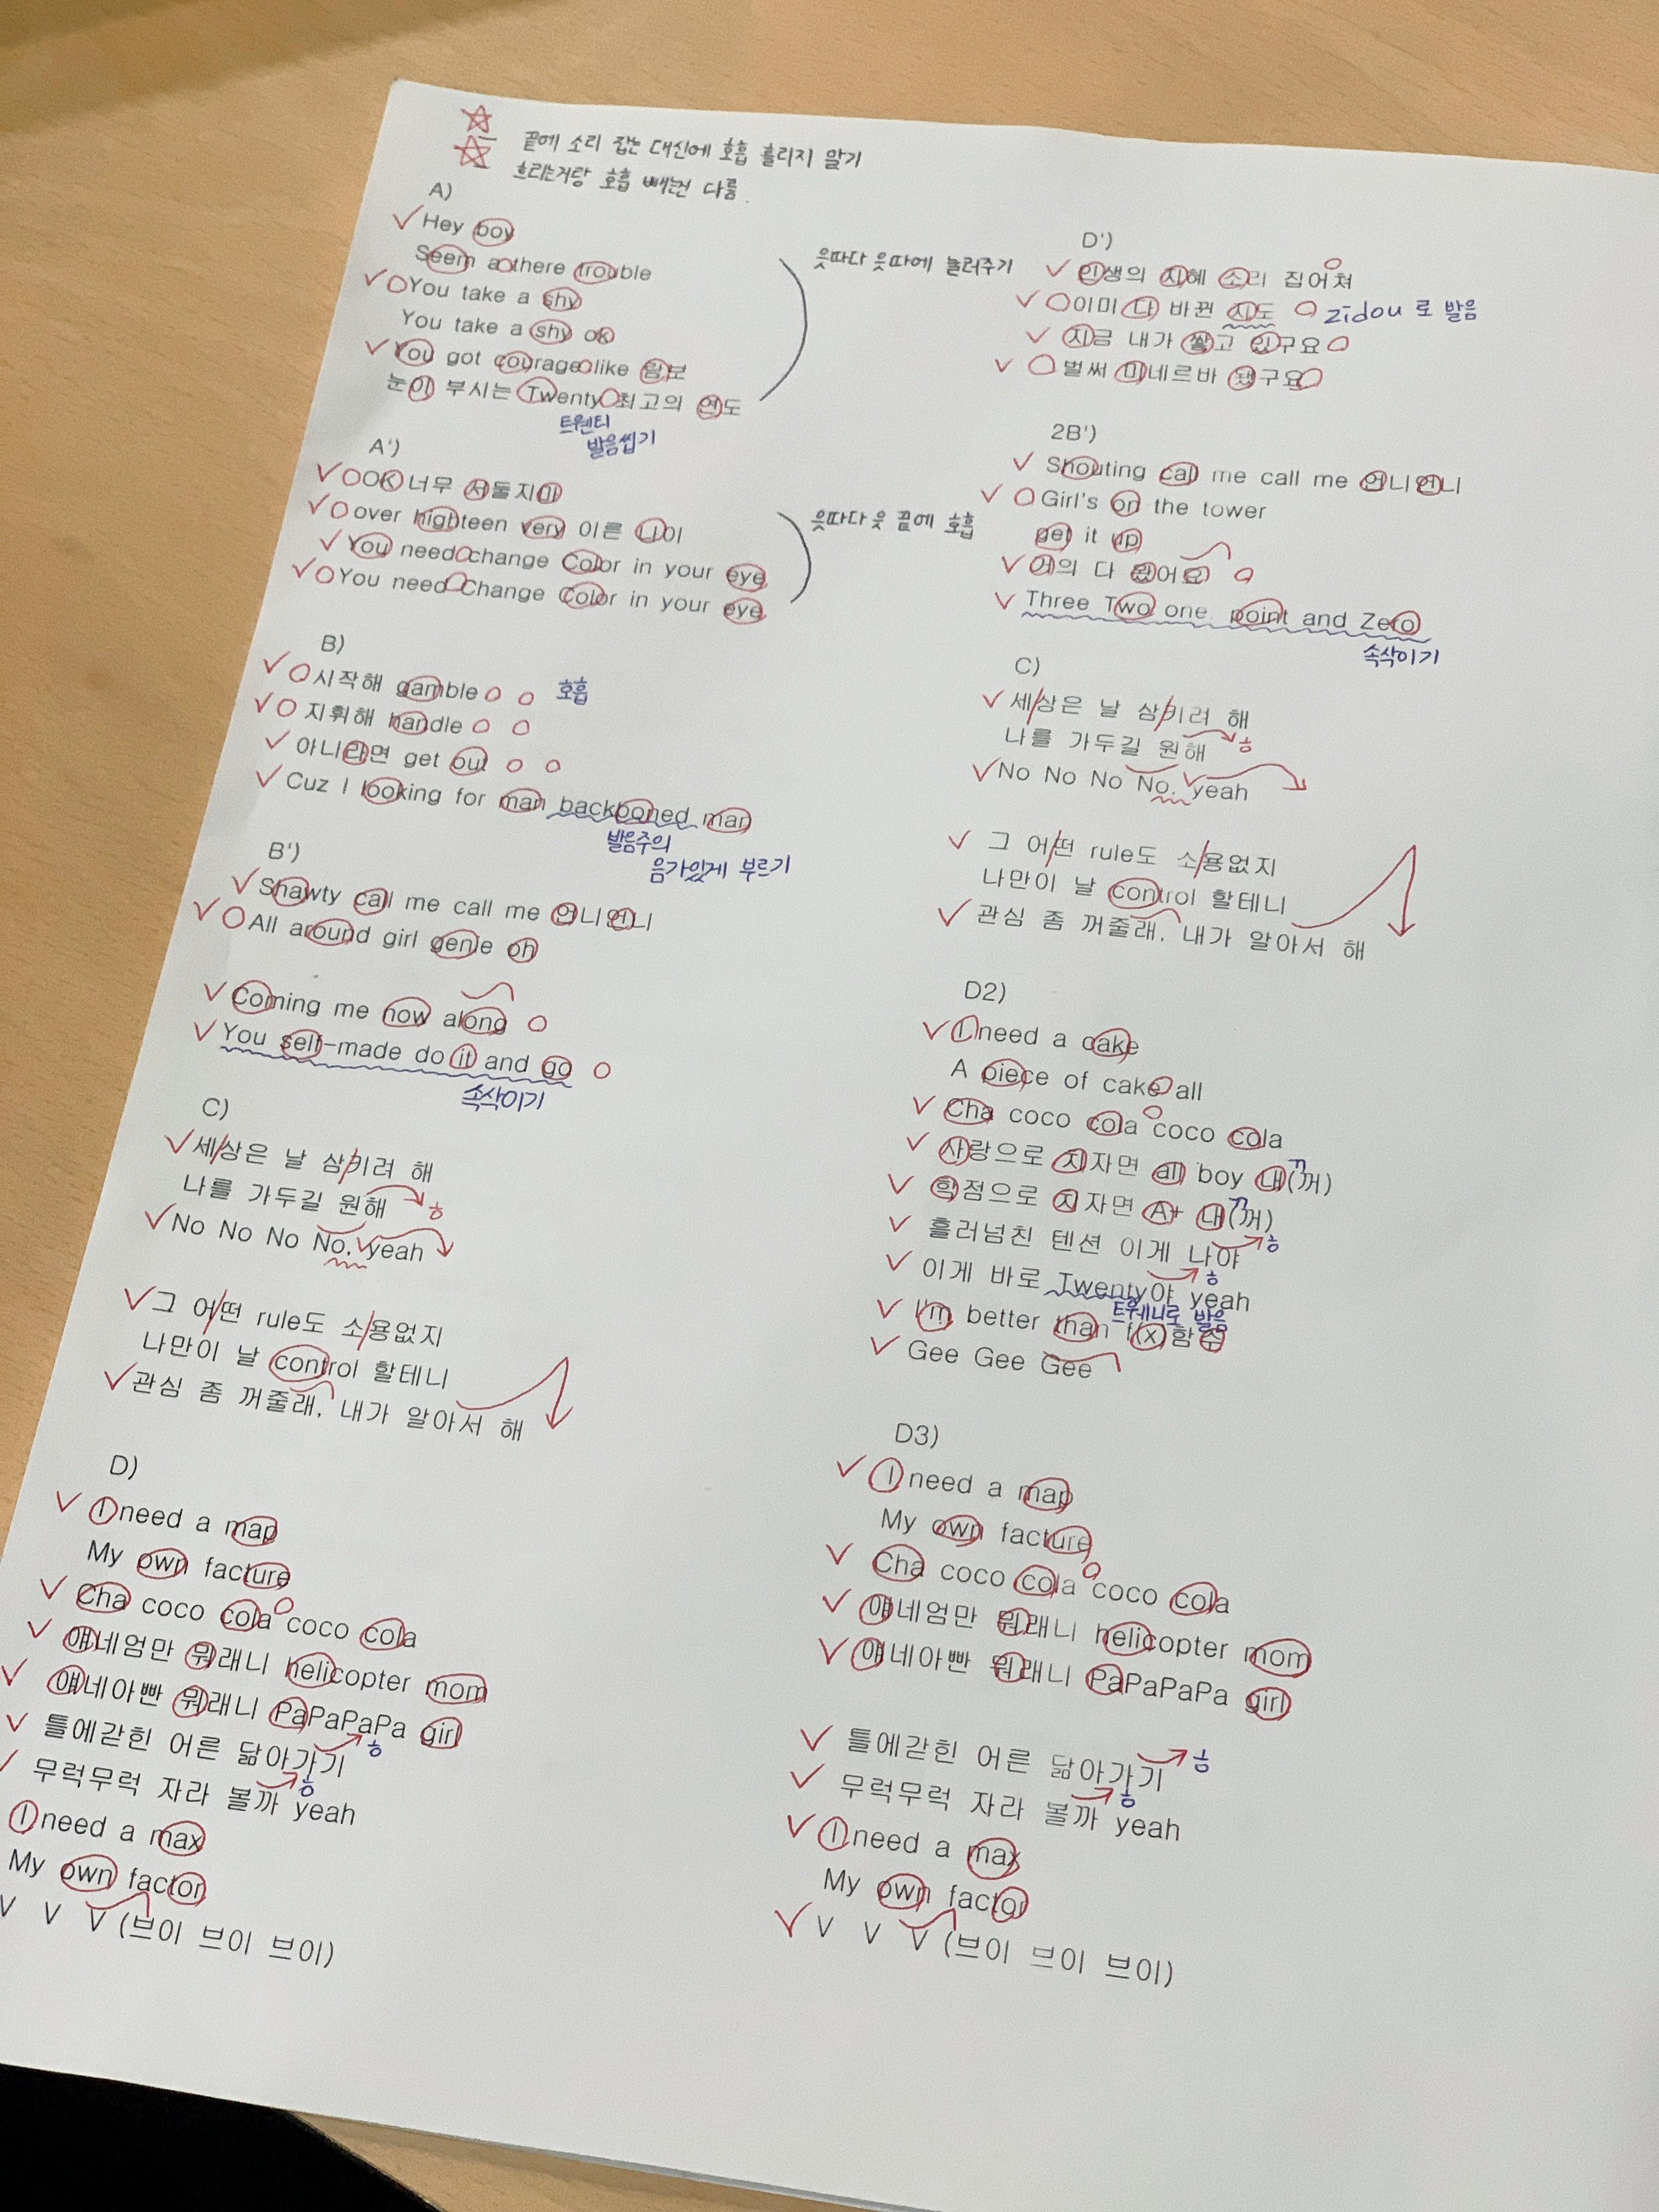 끝에 소리 잡는 대신에 호흡 흘리지 말기
흐리는거랑 호흡 빼는건 다름.
A)
Hey boy
Seem a there trouble
You take a shy
You take a shy ok
You got courage like 람보
눈이 부시는 Twenty 최고의 연도
트웬티
발음씹기
읏따다 읏따에 눌러주기
A')
OK 너무 서둘지마
over highteen very 이른 나이
You need change Color in your eye
You need Change Color in your eye
읏따다 읏 끝에 호흡
B)
시작해 gamble 호흡
지휘해 handle
아니라면 get out
Cuz I looking for man backboned man
발음주의
음가있게 부르기
B')
Shawty call me call me 언니언니
All around girl genie oh
Coming me now along
You self-made do it and go
속삭이기
C)
세상은 날 삼키려 해
나를 가두길 원해 흐
No No No No, yeah
그 어떤 rule도 소용없지
나만이 날 control 할테니
관심 좀 꺼줄래, 내가 알아서 해
D)
I need a map
My own facture
Cha coco cola coco cola
얘네엄만 뭐래니 helicopter mom
얘네아빤 뭐래니 PaPaPaPa girl
틀에갇힌 어른 닮아가기 흐
무럭무럭 자라 볼까 yeah 흐
I need a max
My own factor
V V V (브이 브이 브이)
D')
인생의 지혜 소리 집어쳐
이미 다 바뀐 지도 zidou 로 발음
지금 내가 쌓고 있구요
벌써 미네르바 됐구요
2B')
Shouting call me call me 언니언니
Girl's on the tower
get it up
거의 다 왔어요
Three Two one. point and Zero
속삭이기
C)
세상은 날 삼키려 해
나를 가두길 원해 흐
No No No No, yeah
그 어떤 rule도 소용없지
나만이 날 control 할테니
관심 좀 꺼줄래, 내가 알아서 해
D2)
I need a cake
A piece of cake all
Cha coco cola coco cola
사랑으로 지자면 all boy 내(꺼) ㄲ
학점으로 지자면 A+ 내(꺼) ㄲ
흘러넘친 텐션 이게 나야 흐
이게 바로 Twenty야 yeah 흐
트웨니로 발음
I'm better than f(x)함수
Gee Gee Gee
D3)
I need a map
My own facture
Cha coco cola coco cola
얘네엄만 뭐래니 helicopter mom
얘네아빤 뭐래니 PaPaPaPa girl
틀에갇힌 어른 닮아가기 흐
무럭무럭 자라 볼까 yeah 흐
I need a max
My own factor
V V V (브이 브이 브이)